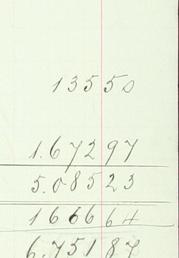 13550
1.67297
5.08523
166664
6.75187